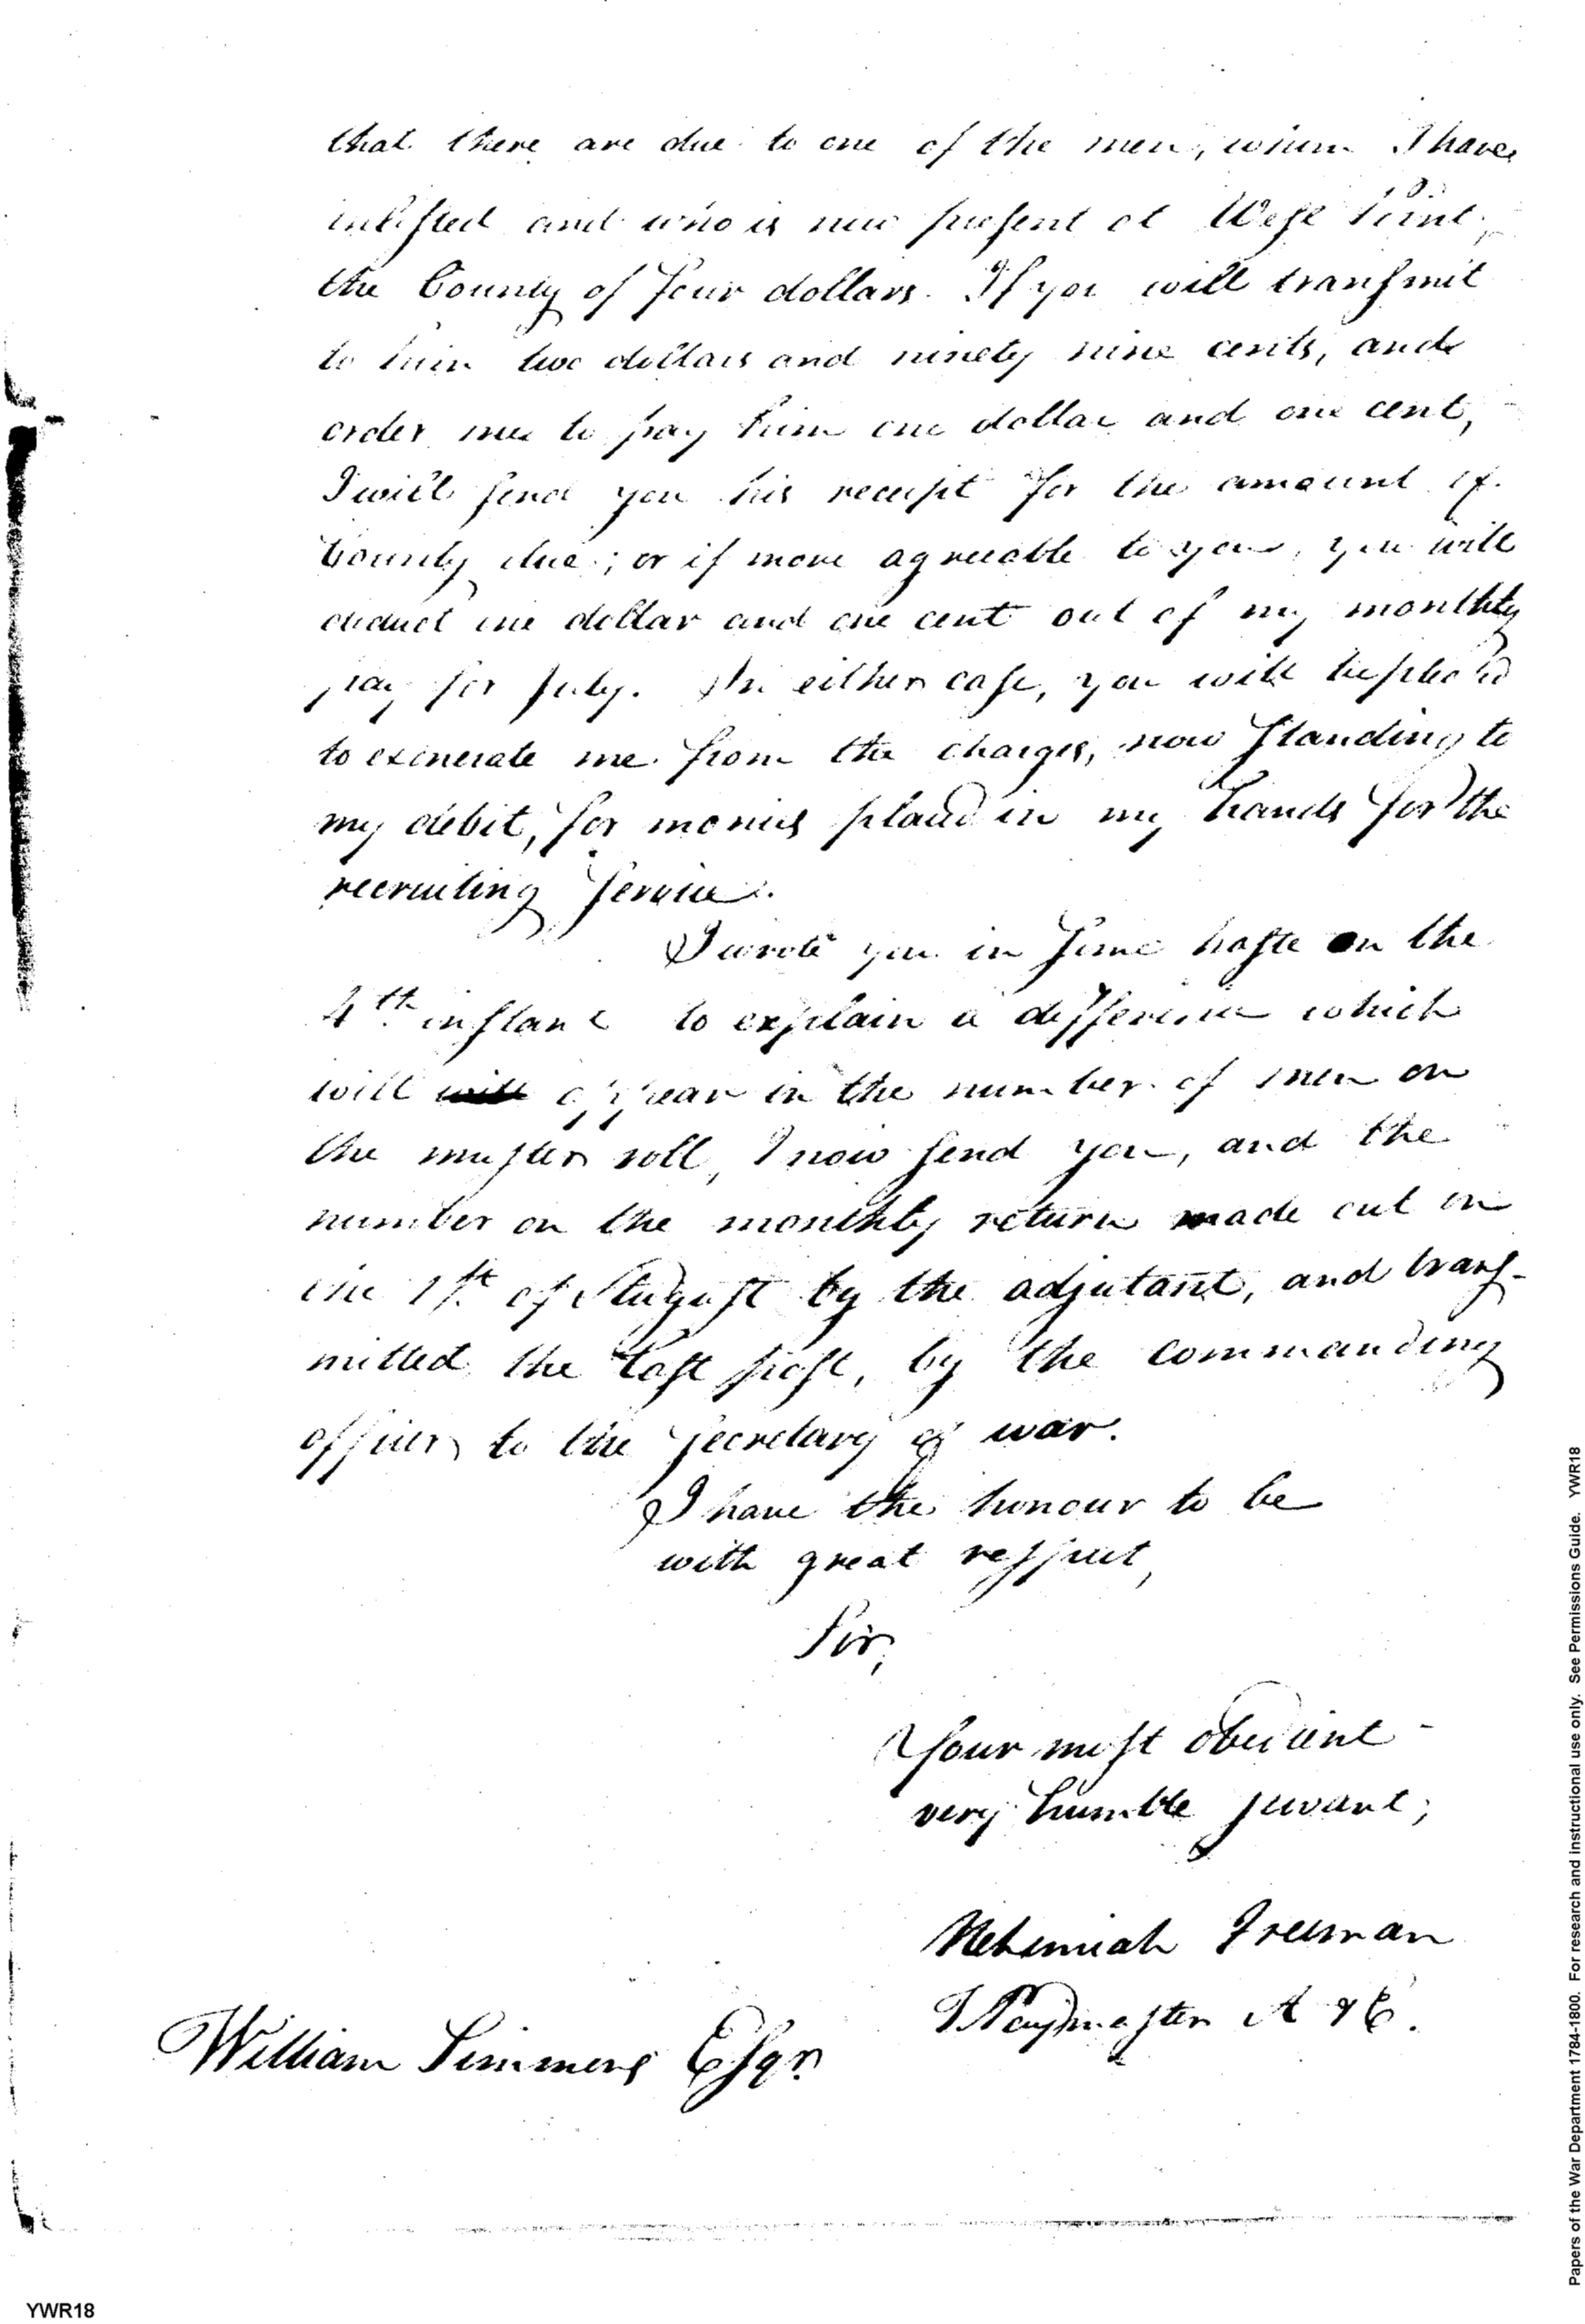 that there are due to one of the men, whom I have
inlisted and who is now present at West Point,
the bounty of four dollars. If you will transmit
to him two dollars and ninety nine cents, and
order me to pay him one dollar and one cent,
I will send you his receipt for the amount of
bounty due; or if more agreeable to you, you will
deduct one dollar and one cent out of my monthly
pay for July. In either case, you will be pleas'd
to exonerate me from the charges, now standing to
my debit, for monies placed in my hands for the
recruiting service.
I wrote you in some haste on the
4th instant to explain a difference which
will will appear in the number of men on
the muster roll, I now send you, and the
number on the monthly return made out on
the 1st of August by the adjutant, and trans-
mitted the last post, by the commanding
officer to the secretary of war.
I have the honour to be
with great respect,
Sir,
Your most obedient
very humble servant,
Nehemiah Freeman
Paymaster A & E.
William Simmons Esqr.
Papers of the War Department 1784-1800. For research and instructional use only. See Permissions Guide. YWR18
YWR18